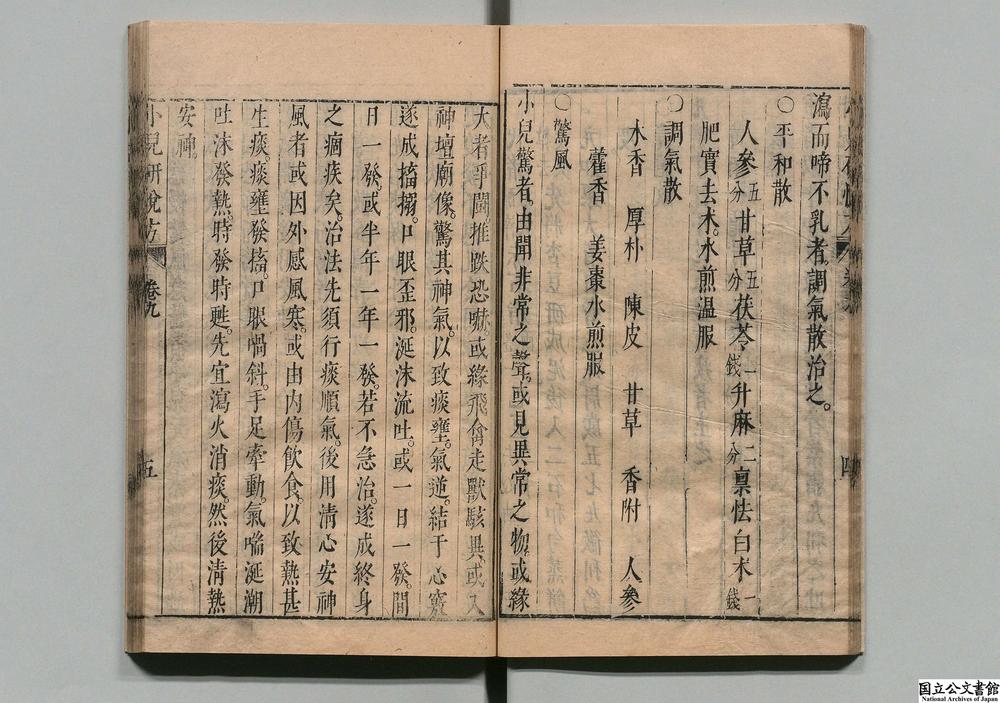 瀉而啼不乳者調氣散治之。
〇平和散
人參五分甘草五分茯苓一錢升麻二分禀怯白朮一錢
肥實去朮。水煎温服
〇調氣散
木香 厚朴 陳皮 甘草 香附 人參
藿香 姜棗水煎服
〇驚風
小兒驚者。由聞非常之聲。或見異常之物。或緣
大者爭鬪。推跌恐嚇。或緣飛禽走獸駭異。或入
神壇廟像。驚其神氣。以致痰壅。氣逆。結于心竅
遂成搐搦。口眼歪邪。涎沫流吐。或一日一發。間
日一發。或半年一年一發。若不急治。遂成終身
之痼疾矣。治法先須行痰順氣。後用清心安神
風者或因外感風寒。或由内傷飲食。以致熱甚
生痰。痰壅發搐。口眼喎斜。手足牽動。氣喘涎潮
吐沫發熱。時發時甦。先宜瀉火消痰。然後清熱
安神。
小兒研悅方
卷九
五
国立公文書館
National Archives of Japan